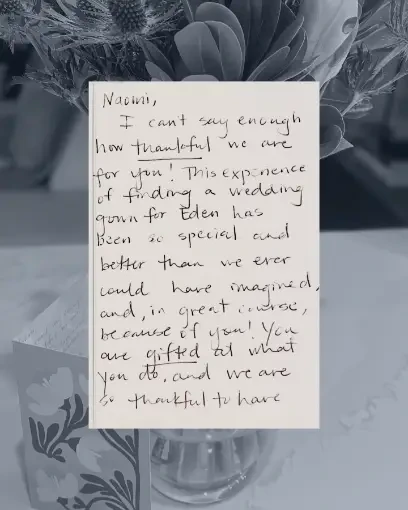 Naomi,
I can't say enough
how thankful we are
for you! This experience
of finding a wedding
gown for Eden has
been so special and
better than we ever
could have imagined,
and, in great course,
because of you! You
are gifted at what
you do, and we are
so thankful to have